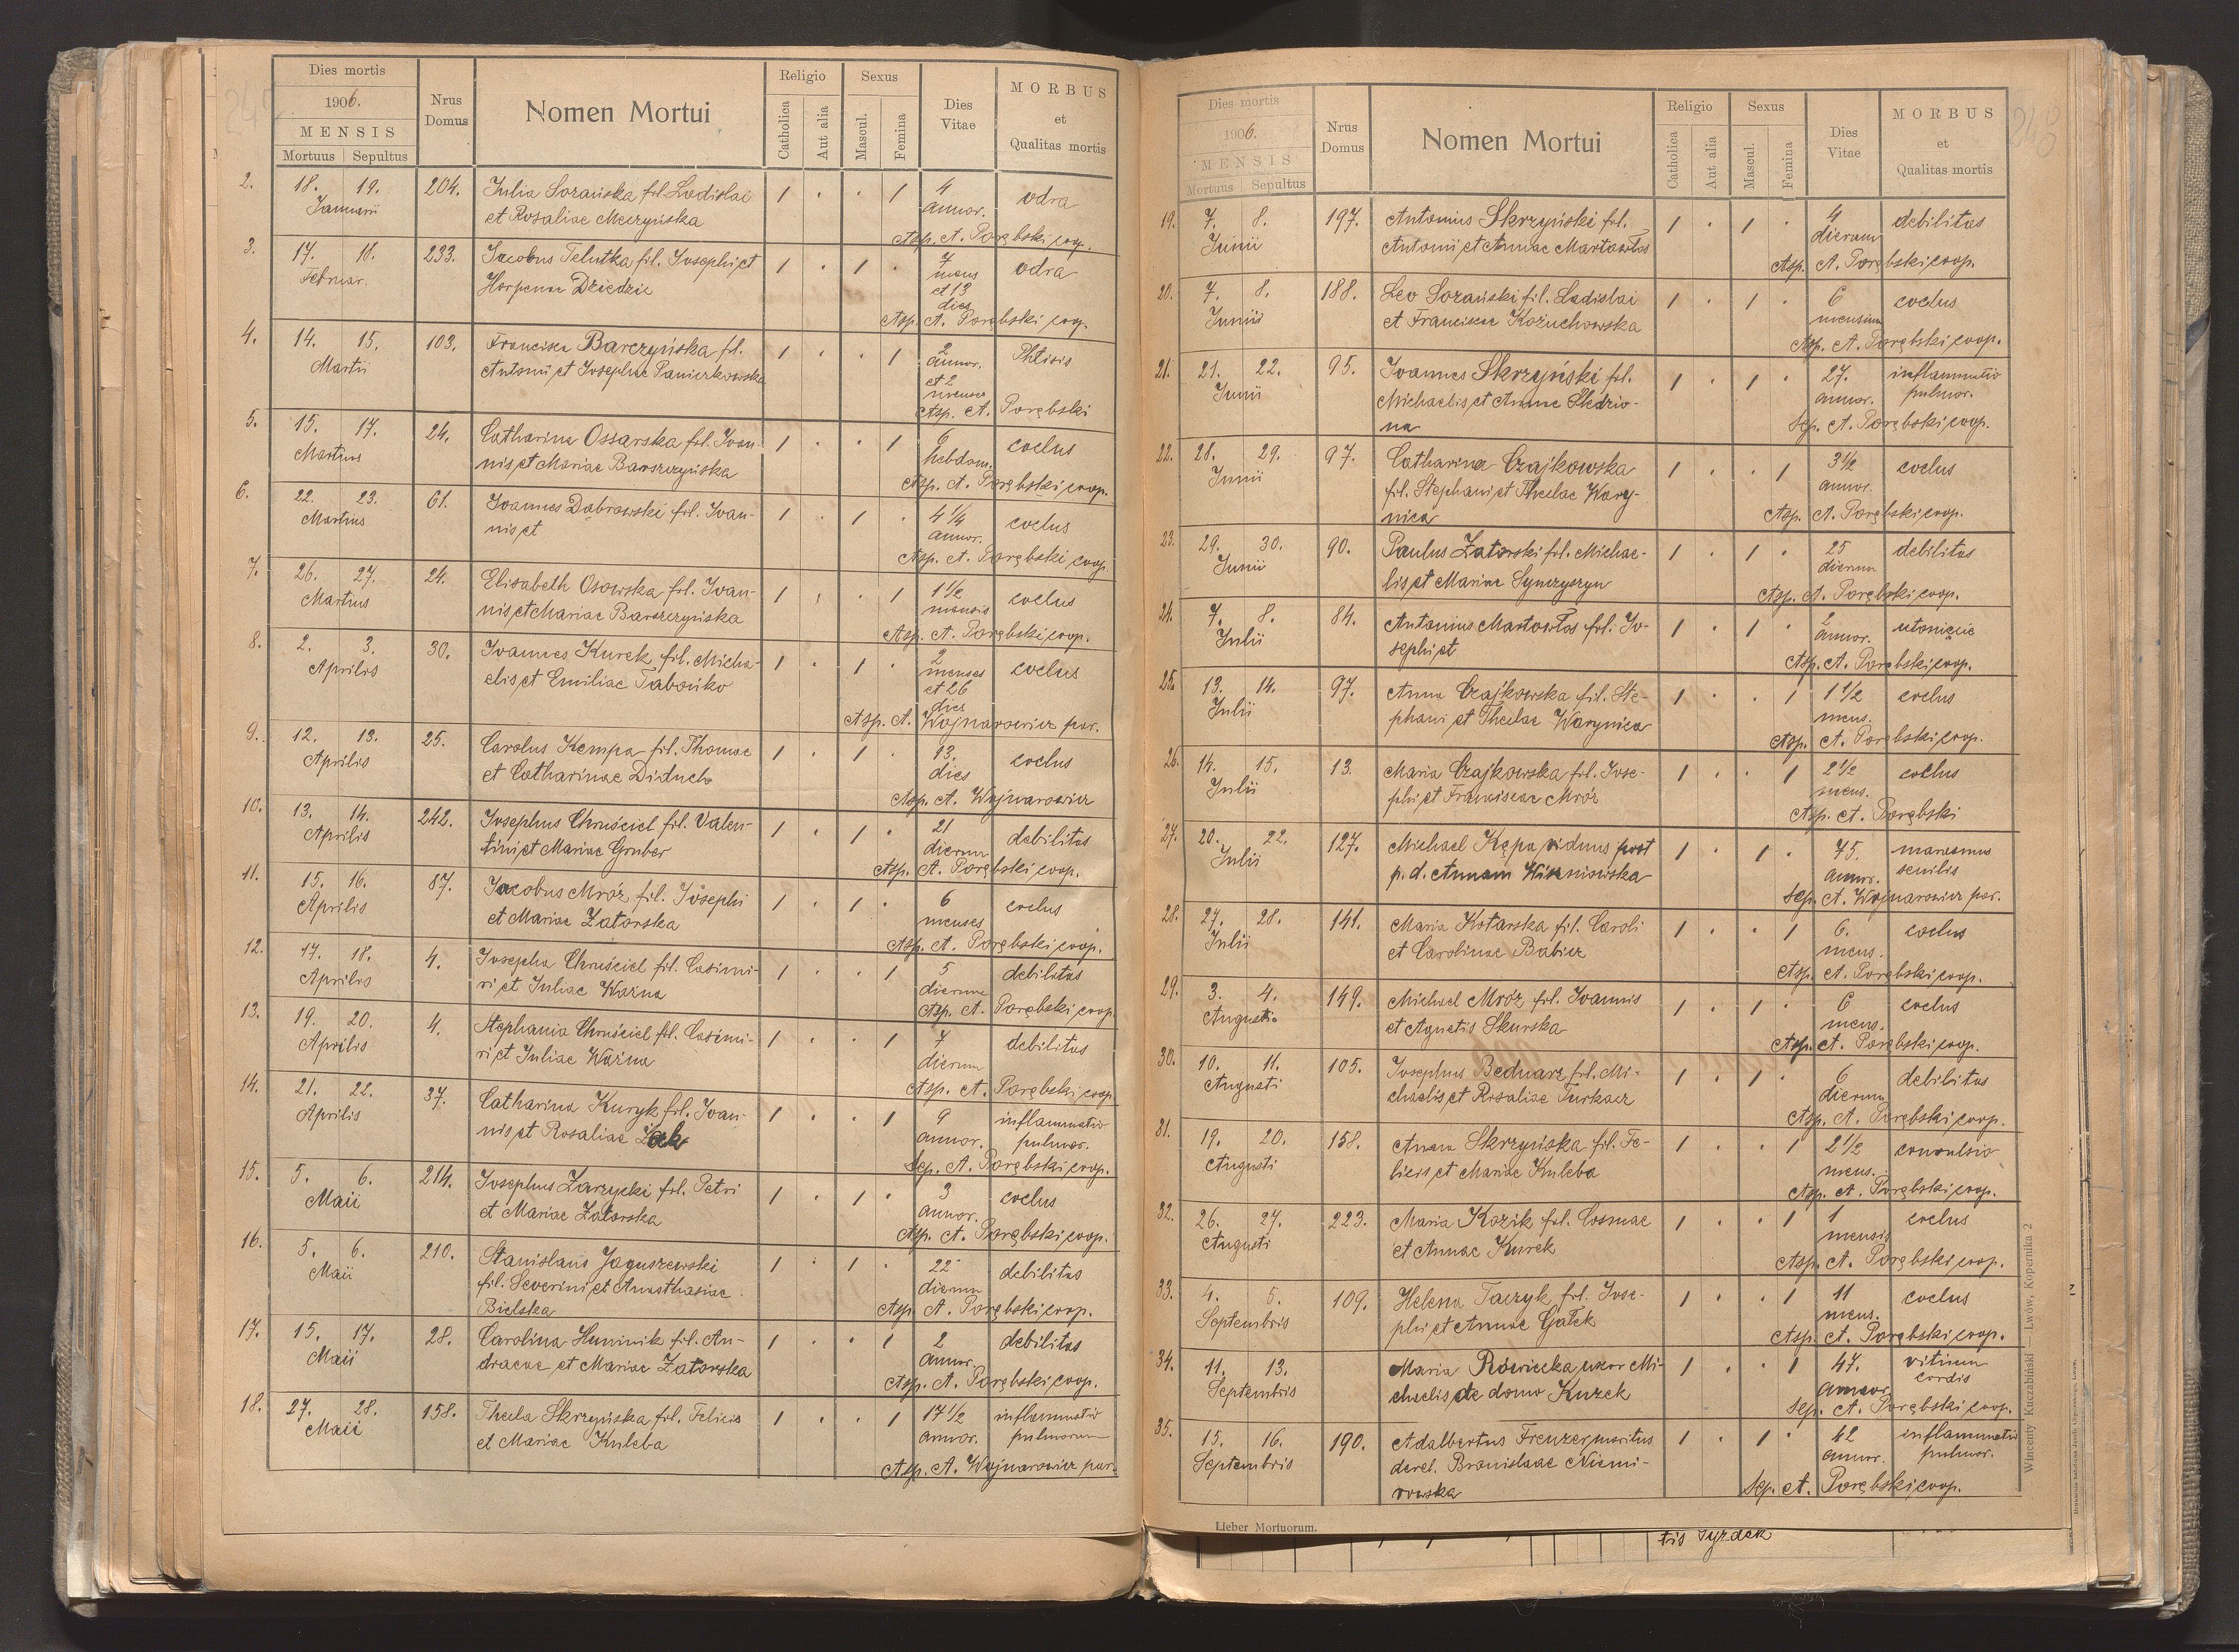 Dies mortis
1906.
MENSIS
Mortuus Sepultus
Nrus Domus
Nomen Mortui
Religio
Catholica
Aut alia
Sexus
Mascul.
Femina
Dies Vitae
MORBUS
et
Qualitas mortis
2. 18. 19. 204. Julia Sozańska fil. Ladislai 1 . . 1 4 odra
Januarii et Rosaliae Meczyńska annor.
Asp. A. Porębski coop.
3. 17. 18. 233. Jacobus Telutka fil. Josephi et 1 . 1 . 7 odra
Februar. Horpenae Dziedzic mens
et 13
dies
Asp. A. Porębski coop.
4. 14. 15. 103. Francisca Barczyńska fil. 1 . . 1 2 Phtisis
Martii Antonii et Josephae Panieczkowska annor.
et 2
menses
Asp. A. Porębski
5. 15. 17. 24. Catharina Ossarska fil. Joan- 1 . . 1 6 coclus
Martius nis et Mariae Barszczyńska hebdom.
Asp. A. Porębski coop.
6. 22. 23. 61. Joannes Dąbrowski fil. Joan- 1 . 1 . 4 1/4 coclus
Martius nis et annor.
Asp. A. Porębski coop.
7. 26. 27. 24. Elisabeth Osowska fil. Joan- 1 . . 1 1 1/2 coclus
Martius nis et Mariae Barszczyńska mensis
Asp. A. Porębski coop.
8. 2. 3. 30. Joannes Kurek fil. Micha- 1 . 1 . 2 coclus
Aprilis elis et Emiliae Tabońko menses
et 26
dies
Asp. A. Wojnarowicz par.
9. 12. 13. 25. Carolus Kempa fil. Thomae 1 . 1 . 13. coclus
Aprilis et Catharinae Diduch dies
Asp. A. Wojnarowicz
10. 13. 14. 242. Josephus Chruściel fil. Valen- 1 . 1 . 21 debilitas
Aprilis tini et Mariae Gruber dierum
Asp. A. Porębski coop.
11. 15. 16. 87. Jacobus Mróz fil. Josephi 1 . 1 . 6 coclus
Aprilis et Mariae Zatorska menses
Asp. A. Porębski coop.
12. 17. 18. 4. Josepha Chruściel fil. Casimi- 1 . . 1 5 debilitas
Aprilis ri et Juliae Ważna dierum
Asp. A. Porębski coop.
13. 19. 20. 4. Stephania Chruściel fil. Casimi- 1 . . 1 7 debilitas
Aprilis ri et Juliae Ważna dierum
Asp. A. Porębski coop.
14. 21. 22. 37. Catharina Kuryk fil. Joan- 1 . . 1 9 inflammatio
Aprilis nis et Rosaliae Żak annor. pulmor.
Sep. A. Porębski coop.
15. 5. 6. 214. Josephus Zarzycki fil. Petri 1 . 1 . 3 coclus
Maii et Mariae Zatorska annor.
Asp. A. Porębski coop.
16. 5. 6. 210. Stanislaus Jaguszewski 1 . 1 . 22 debilitas
Maii fil. Severini et Anasthasiae dierum
Bielska Asp. A. Porębski coop.
17. 15. 17. 28. Carolina Huminik fil. An- 1 . . 1 2 debilitas
Maii dreae et Mariae Zatorska annor.
Asp. A. Porębski coop.
18. 27. 28. 158. Thecla Skrzyńska fil. Felicis 1 . . 1 17 1/2 inflammatio
Maii et Mariae Kuleba annor. pulmorum
Asp. A. Wojnarowicz par.
248
Dies mortis
1906.
MENSIS
Mortuus Sepultus
Nrus Domus
Nomen Mortui
Religio
Catholica
Aut alia
Sexus
Mascul.
Femina
Dies Vitae
MORBUS
et
Qualitas mortis
19. 7. 8. 197. Antonius Skrzyński fil. 1 . 1 . 4 debilitas
Junii Antoni et Annae Martowłos dierum
Asp. A. Porębski coop.
20. 7. 8. 188. Leo Sozański fil. Ladislai 1 . 1 . 6 coclus
Junii et Franciscae Kożuchowska mensium
Asp. A. Porębski coop.
21. 21. 22. 95. Joannes Skrzyński fil. 1 . 1 . 27. inflammatio
Junii Michaelis et Annae Śledzio- annor. pulmor.
na Sep. A. Porębski coop.
22. 28. 29. 97. Catharina Czajkowska 1 . . 1 3 1/2 coclus
Junii fil. Stephani et Theclae Wary- annor.
nica Asp. A. Porębski coop.
23. 29. 30. 90. Paulus Zatorski fil. Michae- 1 . 1 . 25 debilitas
Junii lis et Mariae Symczyszyn dierum
Asp. A. Porębski coop.
24. 7. 8. 84. Antonius Martowłos fil. Jo- 1 . 1 . 2 utonięcie
Julii sephi et annor.
Asp. A. Porębski coop.
25. 13. 14. 97. Anna Czajkowska fil. Ste- 1 . . 1 1 1/2 coclus
Julii phani et Theclae Warynica mens.
Asp. A. Porębski coop.
26. 14. 15. 13. Maria Czajkowska fil. Jose- 1 . . 1 2 1/2 coclus
Julii phi et Franciscae Mróz mens.
Asp. A. Porębski
27. 20. 22. 127. Michael Kępa viduus post 1 . 1 . 75. marasmus
Julii p. d. Annam Wiśniowska annor. senilis
Sep. A. Wojnarowicz par.
28. 27. 28. 141. Maria Kotarska fil. Caroli 1 . . 1 6. coclus
Julii et Carolinae Babicz mens.
Asp. A. Porębski coop.
29. 3. 4. 149. Michael Mróz fil. Joannis 1 . 1 . 6 coclus
Augusti et Agnetis Skurska mens.
Asp. A. Porębski coop.
30. 10. 11. 105. Josephus Bednarz fil. Mi- 1 . 1 . 6 debilitas
Augusti chaelis et Rosaliae Turkacz dierum
Asp. A. Porębski coop.
31. 19. 20. 158. Anna Skrzyńska fil. Fe- 1 . . 1 2 1/2 convulsio
Augusti licis et Mariae Kuleba mens.
Asp. A. Porębski coop.
32. 26. 27. 223. Maria Kozik fil. Cosmae 1 . . 1 1 coclus
Augusti et Annae Kurek mensis
Asp. A. Porębski coop.
33. 4. 5. 109. Helena Taczyk fil. Jose- 1 . . 1 11 coclus
Septembris phi et Annae Gałek mens.
Asp. A. Porębski coop.
34. 11. 13. Maria Rowiecka uxor Mi- 1 . . 1 47. vitium
Septembris chaelis de domo Kurek annor. cordis
Sep. A. Porębski coop.
35. 15. 16. 190. Adalbertus Frenzer maritus 1 . 1 . 42 inflammatio
Septembris derel. Bronislaae Niemi- annor. pulmor.
rowska Sep. A. Porębski coop.
Lieber Mortuorum.
Wincenty Kuczabiński — Lwów, Kopernika 2
tis Tyrdek